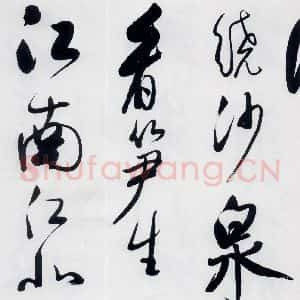 绕沙泉
看笋生
江南江北
Shufawang.CN